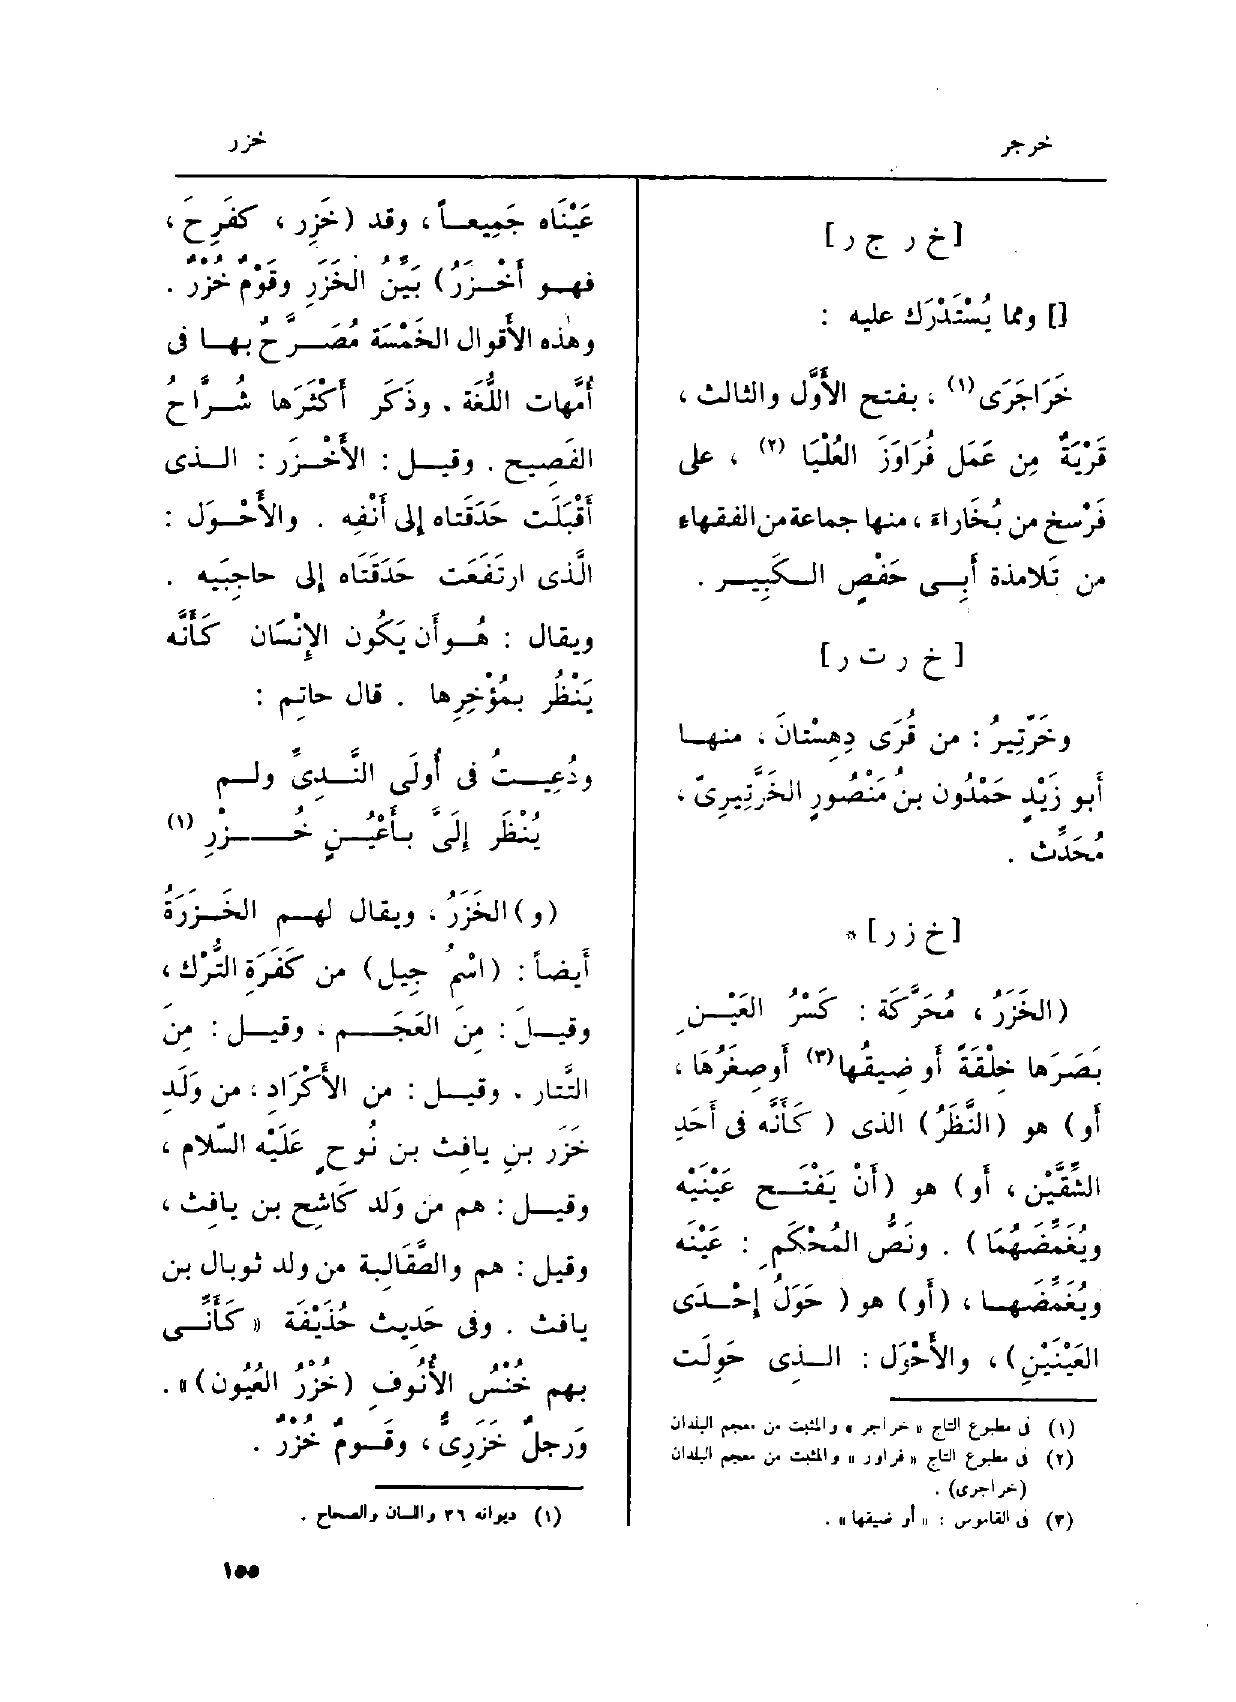 خرجر
خزر
[خ ر ج ر]
[] ومما يُسْتَدْرَك عليه :
خَرَاجَرَى (١) ، بفتح الأَوَّل والثالث ،
قَرْيَةٌ مِن عَمَل فُرَاوَزَ العُلْيَا (٢) ، على
فَرْسخ من بُخَاراءَ ، منها جماعة من الفقهاء
من تَلامذة أَبِى حَفْصٍ الكَبِير .
[خ ر ت ر]
وخَرْتِيرُ : من قُرَى دِهِسْتانَ ، منها
أَبو زَيْدٍ حَمْدُون بنُ مَنْصُورٍ الخَرَّتِيرِىّ ،
مُحَدِّث .
[خ ز ر] *
(الخَزَرُ ، مُحَرَّكَة : كَسْرُ العَيْنِ
بَصَرَها خِلْقَةً أَو ضِيقُها (٣) أَو صِغَرُهَا ،
أَو) هو (النَّظَرُ) الذى ( كَأَنَّه فى أَحَدِ
الشِّقَّيْن ، أَو) هو (أَنْ يَفْتَح عَيْنَيْه
ويُغَمِّضَهُمَا ) . ونَصُّ المُحْكَمِ : عَيْنَه
ويُغَمِّضَها ، (أَو) هو ( حَوَلُ إِحْدَى
العَيْنَيْنِ) ، والأَحْوَل : الذى حَوِلَت
(١) فى مطبوع التاج « خراجر » والمثبت من معجم البلدان
(٢) فى مطبوع التاج « فراور » والمثبت من معجم البلدان
(خراجرى) .
(٣) فى القاموس : « أو ضيقها » .
عَيْنَاه جَمِيعاً ، وقد (خَزِر ، كفَرِحَ ،
فهو أَخْزَرُ) بَيِّنُ الخَزَرِ وقَوْمٌ خُزْرٌ .
وهٰذه الأَقوال الخَمْسَة مُصَرَّحٌ بها فى
أُمَّهات اللُّغَة . وذَكَر أَكْثَرَها شُرَّاحُ
الفَصِيح . وقيل : الأَخْزَر : الذى
أَقْبَلَت حَدَقَتاه إِلى أَنْفِه . والأَحْوَل :
الَّذى ارتَفَعَت حَدَقَتاه إِلى حاجِبَيه .
ويقال : هُو أَن يَكُون الإِنْسَان كَأَنَّه
يَنْظُر بمُؤْخِرِها . قال حاتِم :
ودُعِيتُ فى أُولَى النَّدِىِّ ولم
يُنْظَر إِلَىَّ بأَعْيُنٍ خُزْرِ (١)
(و) الخَزَرُ ، ويقال لهم الخَزَرَةُ
أَيضاً : (اسْمُ جِيل) من كَفَرَةِ التُّرْك ،
وقيلَ : مِنَ العَجَم ، وقيل : مِنَ
التَّتار . وقيل : من الأَكْرَادِ ، من وَلَدِ
خَزَر بنِ يافِث بن نُوحٍ عَلَيْه السّلام ،
وقيل : هم من وَلد كَاشِح بن يافِث ،
وقيل : هم والصَّقَالِبة من ولد ثوبال بن
يافث . وفى حَدِيث حُذَيْفَة « كَأَنِّى
بهم خُنْسُ الأُنُوفِ (خُزْرُ العُيُون) » .
وَرَجلٌ خَزَرِىٌّ ، وقَومٌ خُزْرٌ .
(١) ديوانه ٣٦ واللسان والصحاح .
١٥٥